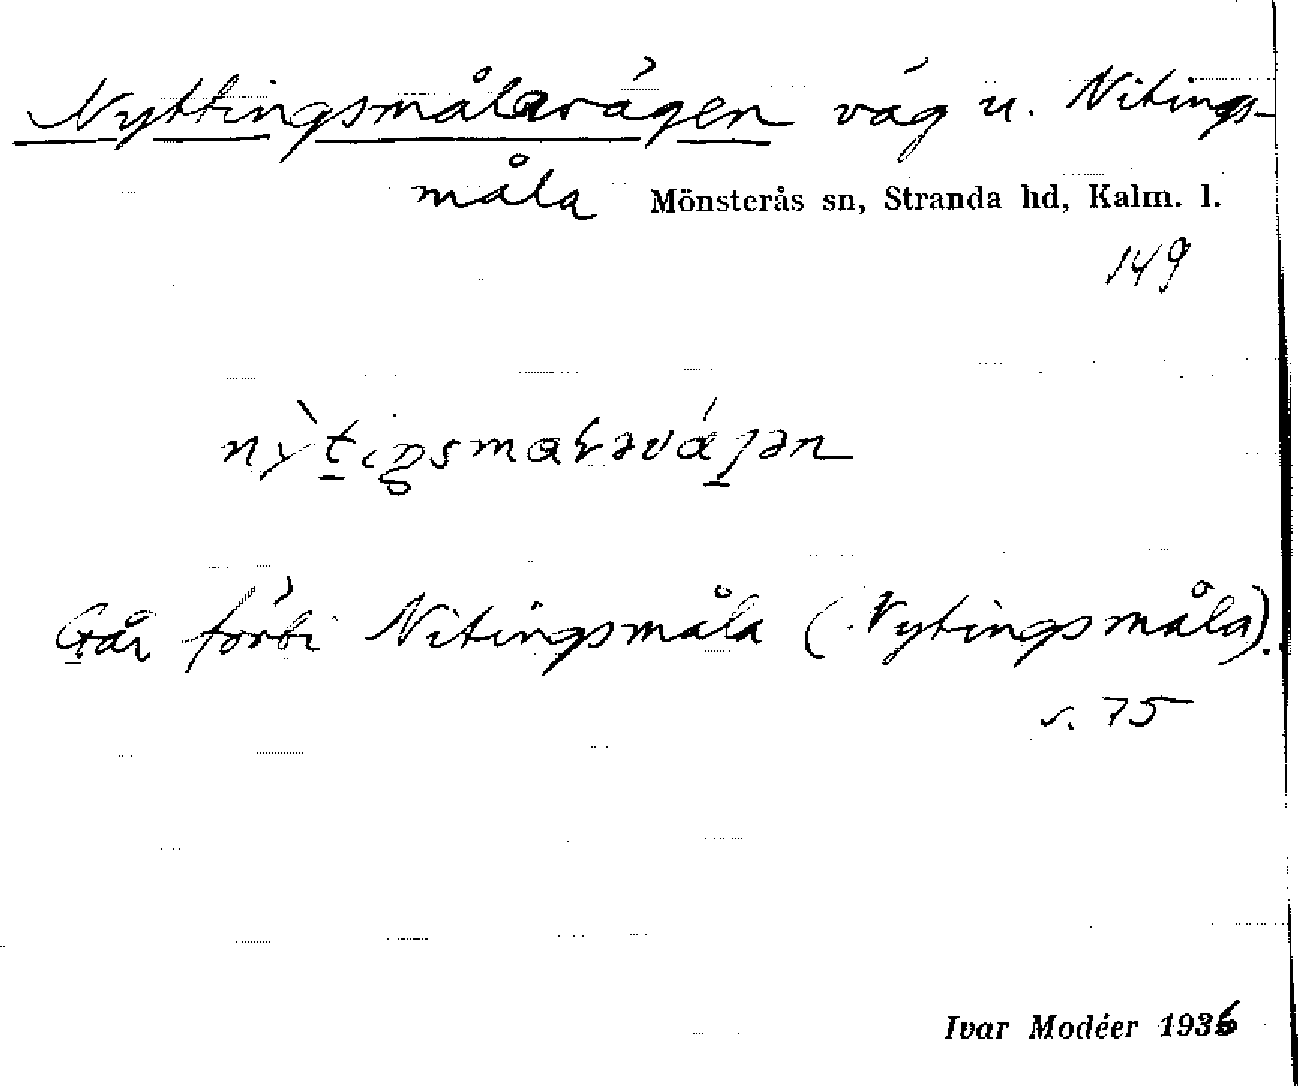 Nyttingsmålavägen väg u. Nitings-
måla Mönsterås sn, Stranda hd, Kalm. l.
149
Går förbi Nitingsmåla (Nytingsmåla).
s. 75
Ivar Modéer 1936